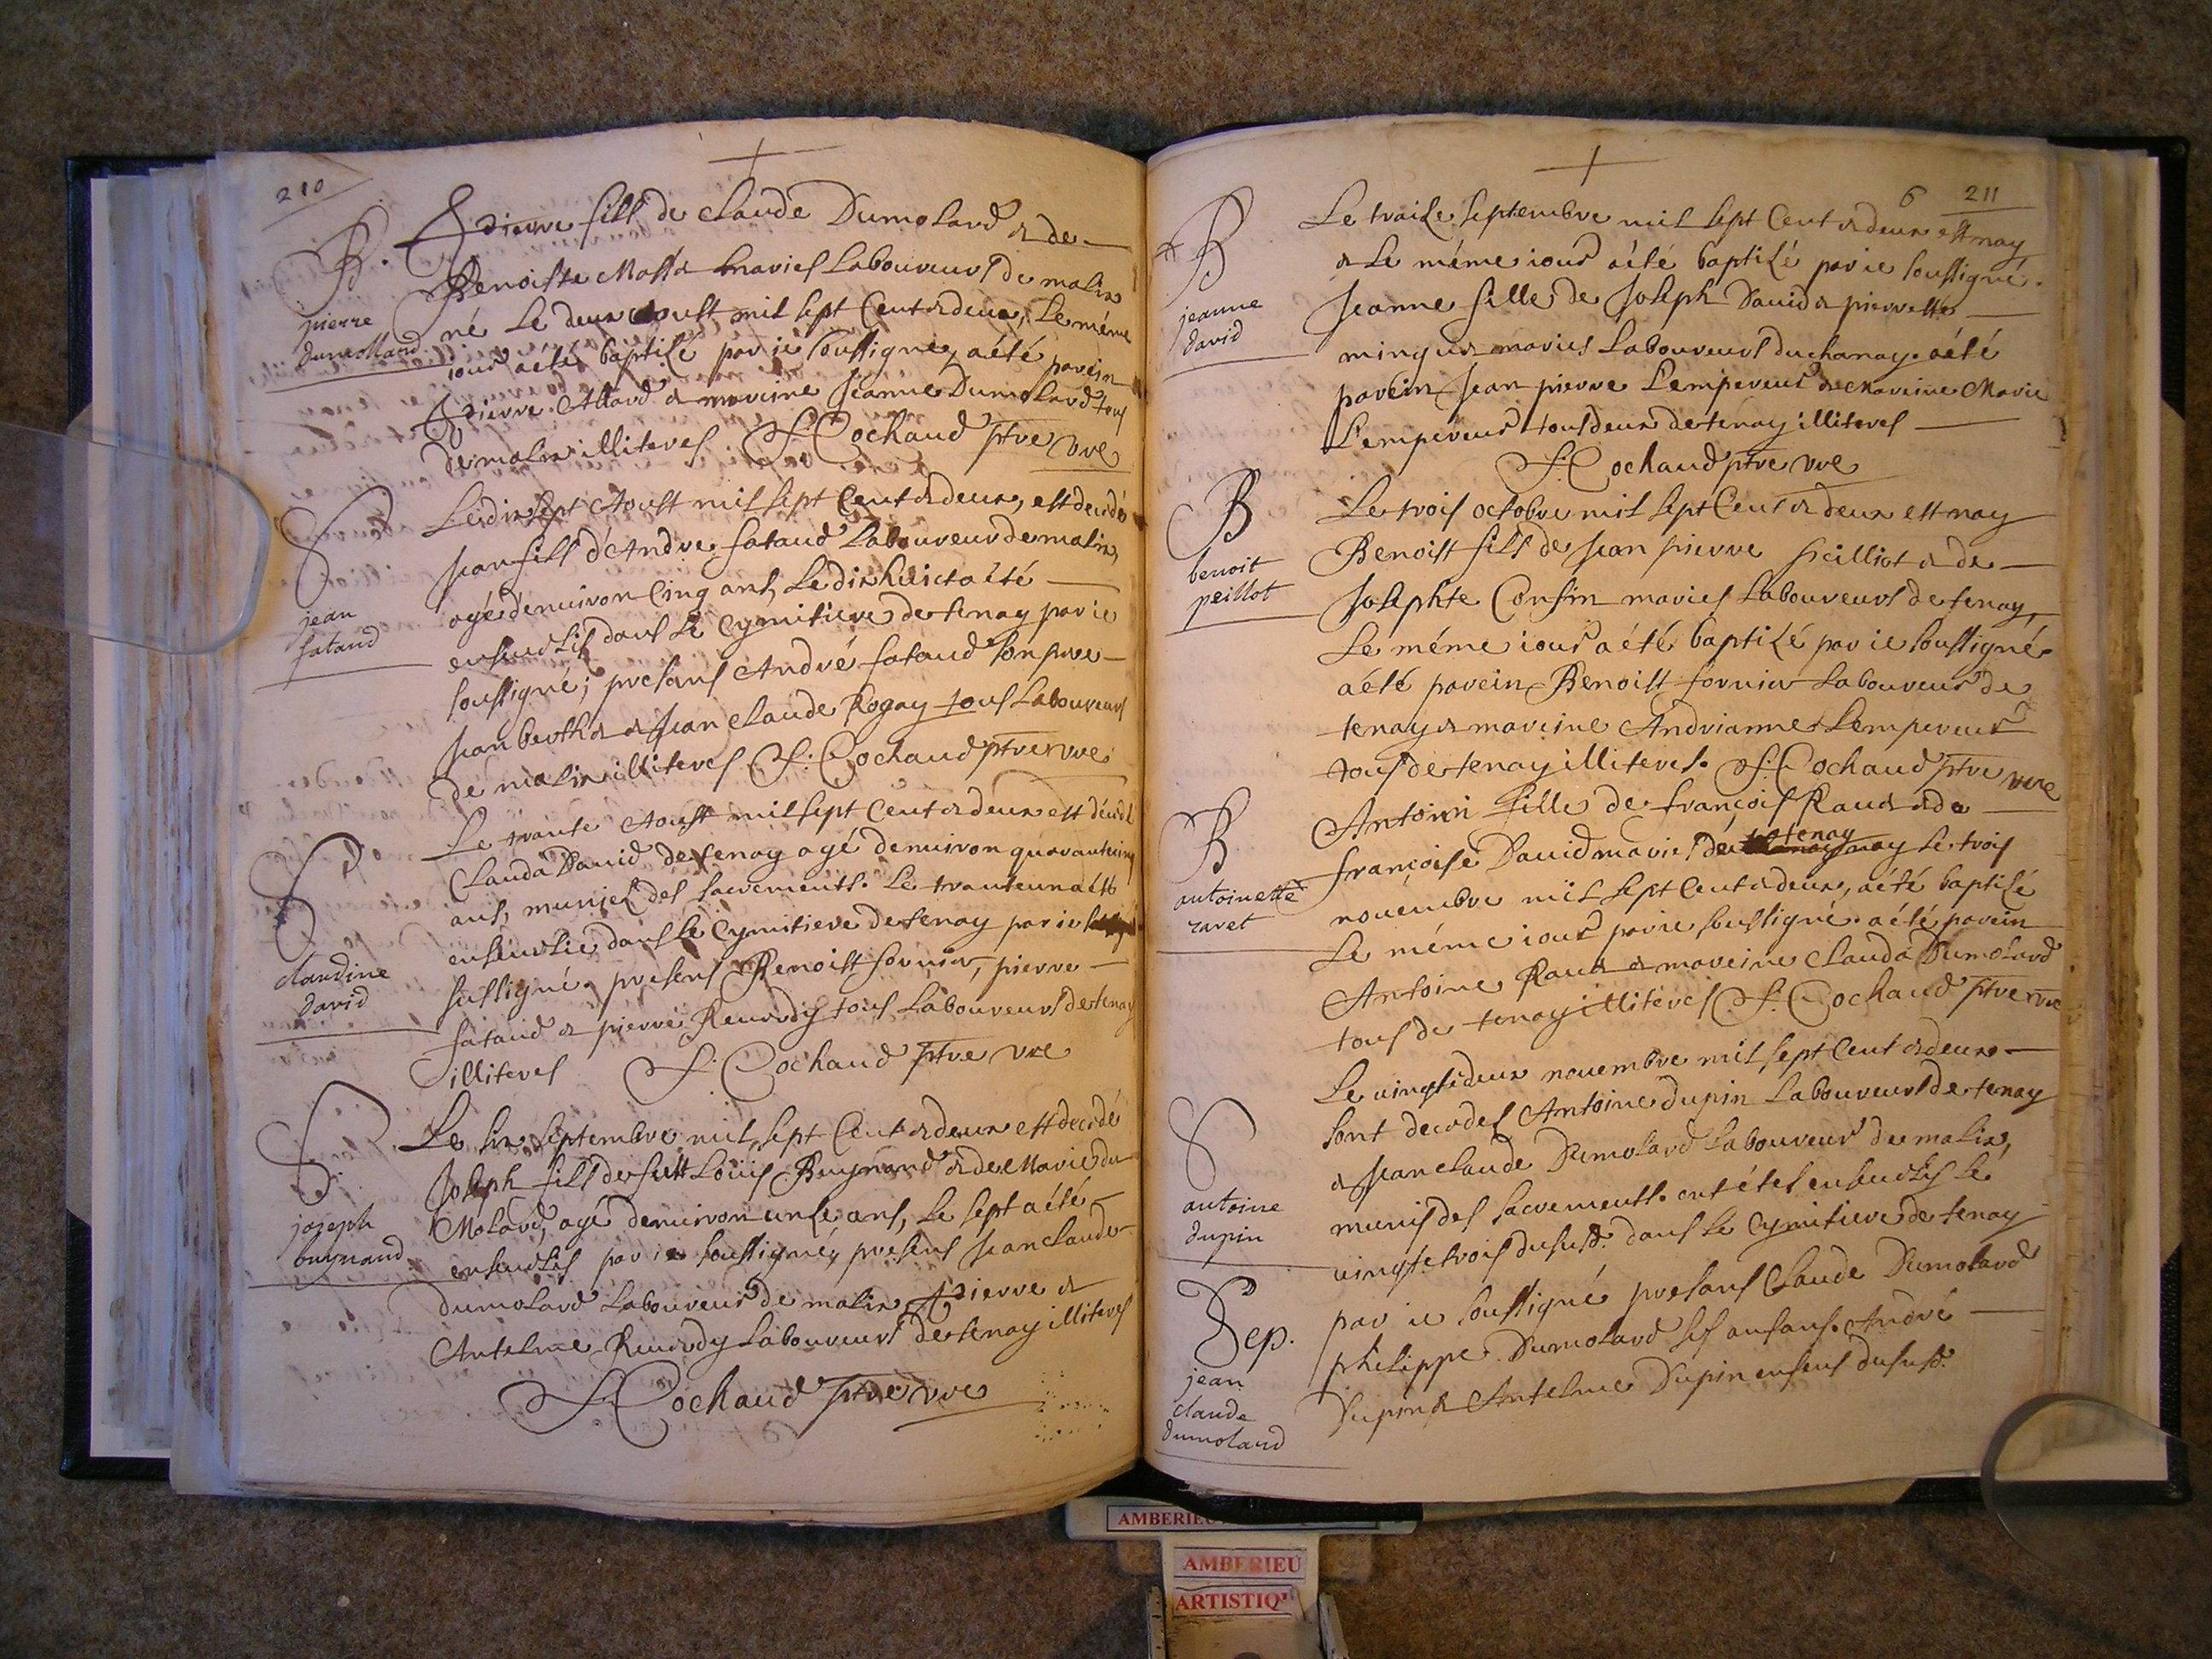 210
B.
pierre
dumollard.
Pierre fils de claude Dumolard & de
Benoiste Masta mariés Laboureurs de malix
né Le deux aoust mil sept Cent & deux, Le méme
iour aété baptizé par ie soussigné, aété parein
Pierre Allard & mareine Jeanne Dumolard tous
de malix illiteres. S. Cochaud ptre vre
S
jean
fataud
Le dix sept Aoust mil sept Cent & deux, est decedé
Jean fils d'Andre fataud Laboureur de malix,
agé denuiron Cinq ans, Le dix huict aété
enseuelis dans Le Cymitiere de tenay par ie
soussigné; presans André fataud son pere
Jean & Jean claude Rogay tous Laboureurs
de malix illiteres S. Cochaud ptre vre
S
claudine
david
Le trante Aoust mil sept Cent & deux est decedé
Clauda Dauid de tenay agé denuiron quarante cinq
ans, munies des sacrements. Le trante un aété
enseuelie dans Le Cymitiere de tenay par ie
sussigné. presens Benoist fornier, pierre
fataud & pierre Reuerdy tous Laboureurs de tenay
illiteres S. Cochaud ptre vre
S.
joseph
buynand
Le six septembre mil sept Cent & deux est decedé
Joseph fils de fust Loüis Buynand & de Marie du
Molard, agé denuiron unze ans, Le sept aété
enseuelis par ie soussigné, presens Jean claude
dumolard Laboureur de malix, Pierre &
Antelme Reuerdy Laboureurs de tenay illiteres
S. Cochaud ptre vre
6 211
B
jeanne
david
Le traize septembre mil sept Cent & deux est nay
& Le méme iour aété baptizé par ie soussigné.
Jeanne fille de Joseph Dauid & pierrette
minguet mariés Laboureurs du chanay. aété
parein Jean pierre Lempereur & Mareine Marie
Lempereur tous deux de tenay illiteres
S. Cochaud ptre vre
B
benoit
peillot
Le trois octobre mil sept Cent & deux est nay
Benoist fils de Jean pierre peilliot & de
Josephte Consin mariés Laboureurs de tenay,
Le méme iour aété baptizé par ie soussigné
aété parein Benoist fornier Laboureur de
tenay & mareine Andrianne Lempereur
tous de tenay illiteres. S. Cochaud ptre vre
B
antoinette
ravet
fille de françois Rauet & de
françoise Dauid mariés de tenay nay Le trois
nouémbre mil sept Cent & deux, aété baptizé
Le méme iour par ie soussigné. aété parein
Antoine Rauet & mareine Clauda Dumolard
tous de tenay illiteres S. Cochaud ptre vre
S
antoine
dupin
Le uingtideux nouembre mil sept Cent & deux
sont decedes Antoine dupin Laboureurs de tenay
& Jean claude Dumolard Laboureur de malix,
munis des sacrements. ont étes enseuelis Le
uingtetrois dususd. dans Le Cymitiere de tenay
Sep.
jean
claude
dumolard
par ie soussigné presans Claude Dumolard
philippe Dumolard ses anfans. André
Dupin & Antelme Dupin enfens dususd.
AMBERIEU
AMBERIEU
ARTISTIQU